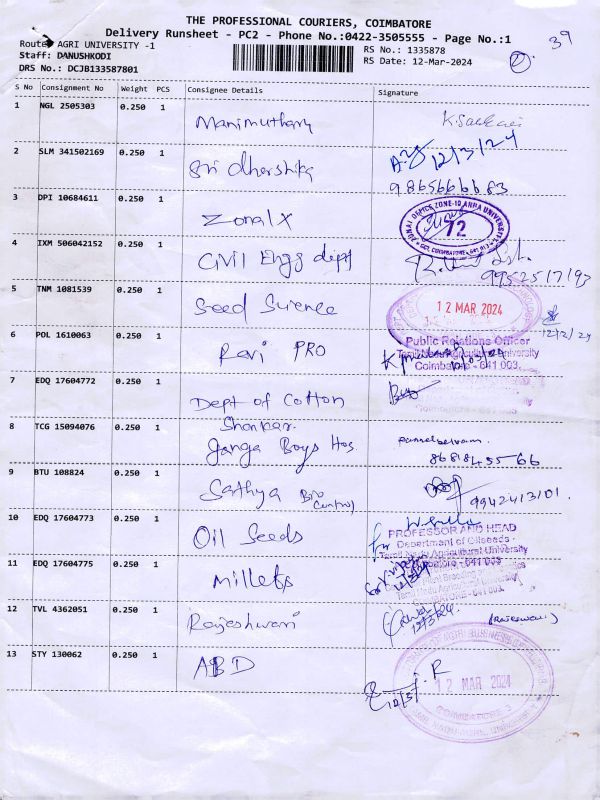 THE PROFESSIONAL COURIERS, COIMBATORE
Delivery Runsheet - PC2 - Phone No.:0422-3505555 - Page No.:1
39
Route: AGRI UNIVERSITY -1
RS No.: 1335878
Staff: DANUSHKODI
RS Date: 12-Mar-2024
DRS No.: DCJB133587801
S No Consignment No Weight PCS Consignee Details Signature
1 NGL 2505303 0.250 1 Manimuthary
2 SLM 341502169 0.250 1 Sri dharshika 12/3/24
9865666683
3 DPI 10684611 0.250 1 Zonal X 72
4 IXM 506042152 0.250 1 Civil Engg dept 9952517193
5 TNM 1081539 0.250 1 Seed Science 12 MAR 2024
6 POL 1610063 0.250 1 Ravi PRO Public Relations Officer
Tamil Nadu Agricultural University
Coimbatore - 641 003.
7 EDQ 17604772 0.250 1 Dept of Cotton
8 TCG 15094076 0.250 1 Shankar.
Ganga Boys Hos
8681845566
9 BTU 108824 0.250 1 Sathya Bio Control 9942413101.
10 EDQ 17604773 0.250 1 Oil Seeds PROFESSOR AND HEAD
Department of Oilseeds
Tamil Nadu Agricultural University
11 EDQ 17604775 0.250 1 Millets
12 TVL 4362051 0.250 1 Rajeshwari
13 STY 130062 0.250 1 ABD 12 MAR 2024
COIMBATORE-3